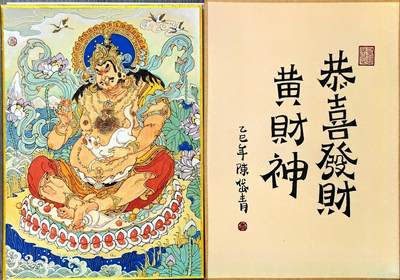 恭喜發財
黄財神
乙巳年陳岱青